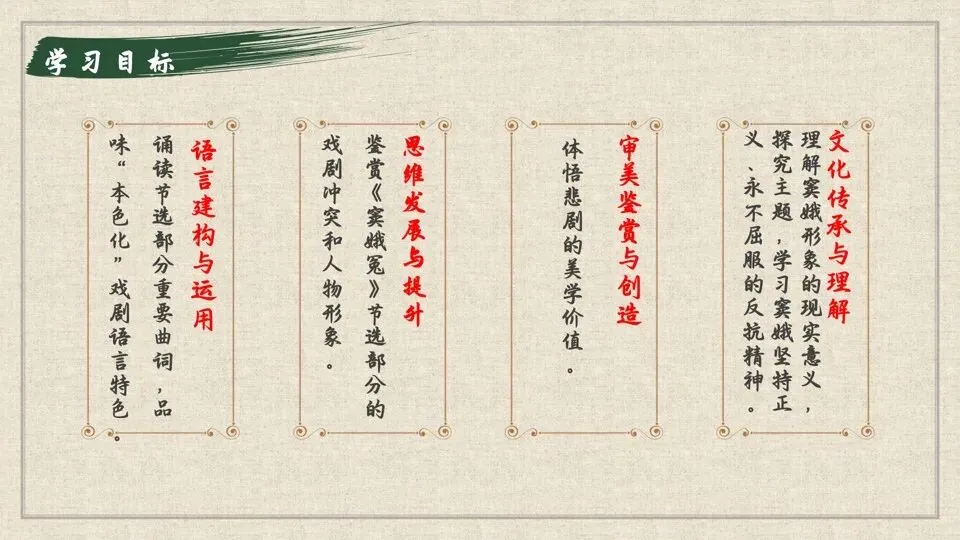 学习目标
语言建构与运用
诵读节选部分重要曲词,品
味“本色化”戏剧语言特色。
思维发展与提升
鉴赏《窦娥冤》节选部分的
戏剧冲突和人物形象。
审美鉴赏与创造
体悟悲剧的美学价值。
文化传承与理解
理解窦娥形象的现实意义,
探究主题,学习窦娥坚持正
义、永不屈服的反抗精神。